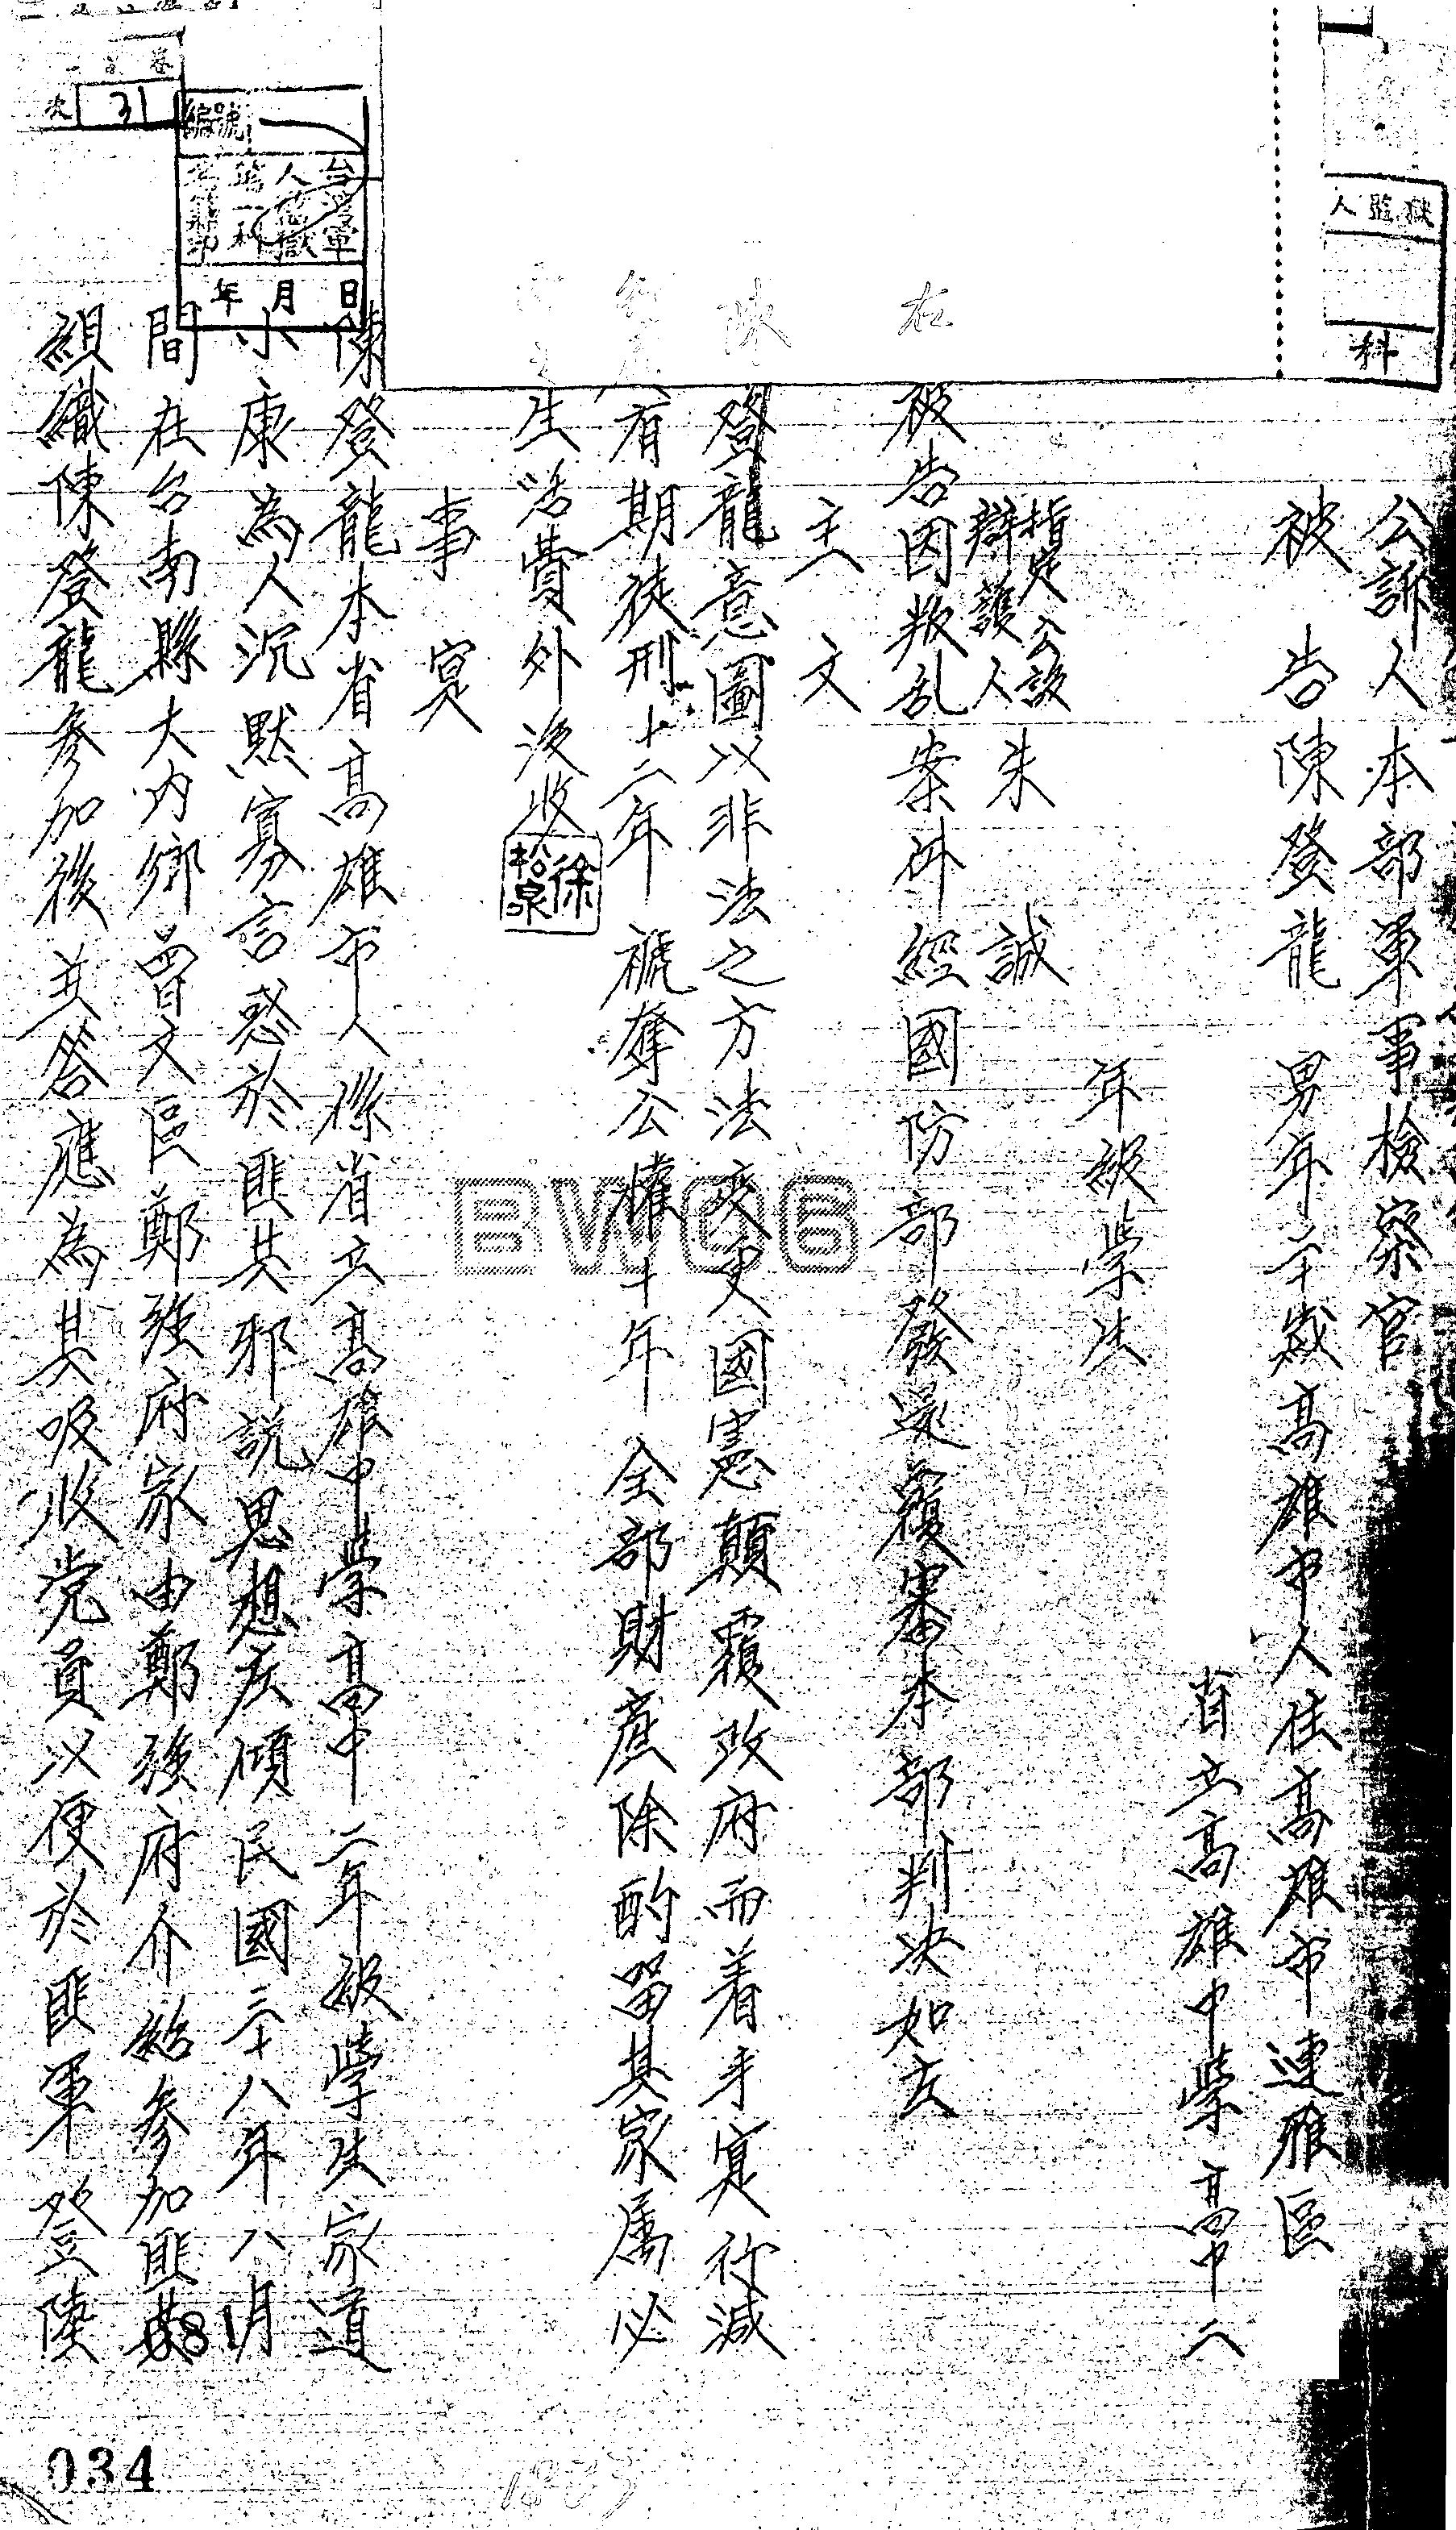 公訴人本部軍事檢察官
被告陳登龍 男年二十歲高雄市人住高雄市連雅區
省立高雄中學高中二
年級學生
指定公設
辯護人 朱 誠
右
被告因叛乱案件經國防部發还覆審本部判决如左
主文
陳登龍意圖以非法之方法变更國憲顛覆政府而着手寔行減
有期徒刑十二年褫奪公權十年全部財產除酌留其家属必
生活費外没收
徐松泉
事寔
陳登龍本省高雄市人係省立高雄中學高中二年級學生家道
小康為人沉默寡言惑於匪共邪說思想左傾民國三十八年八月
間在台南縣大內鄉曾文區鄭强府家由鄭强府介紹參加匪共
組織陳登龍參加後並答應為其吸收党員以便於匪軍登陸
人監獄
科
編號
台灣軍
人監獄
第一科
年月日
次 31
BW06
081
034